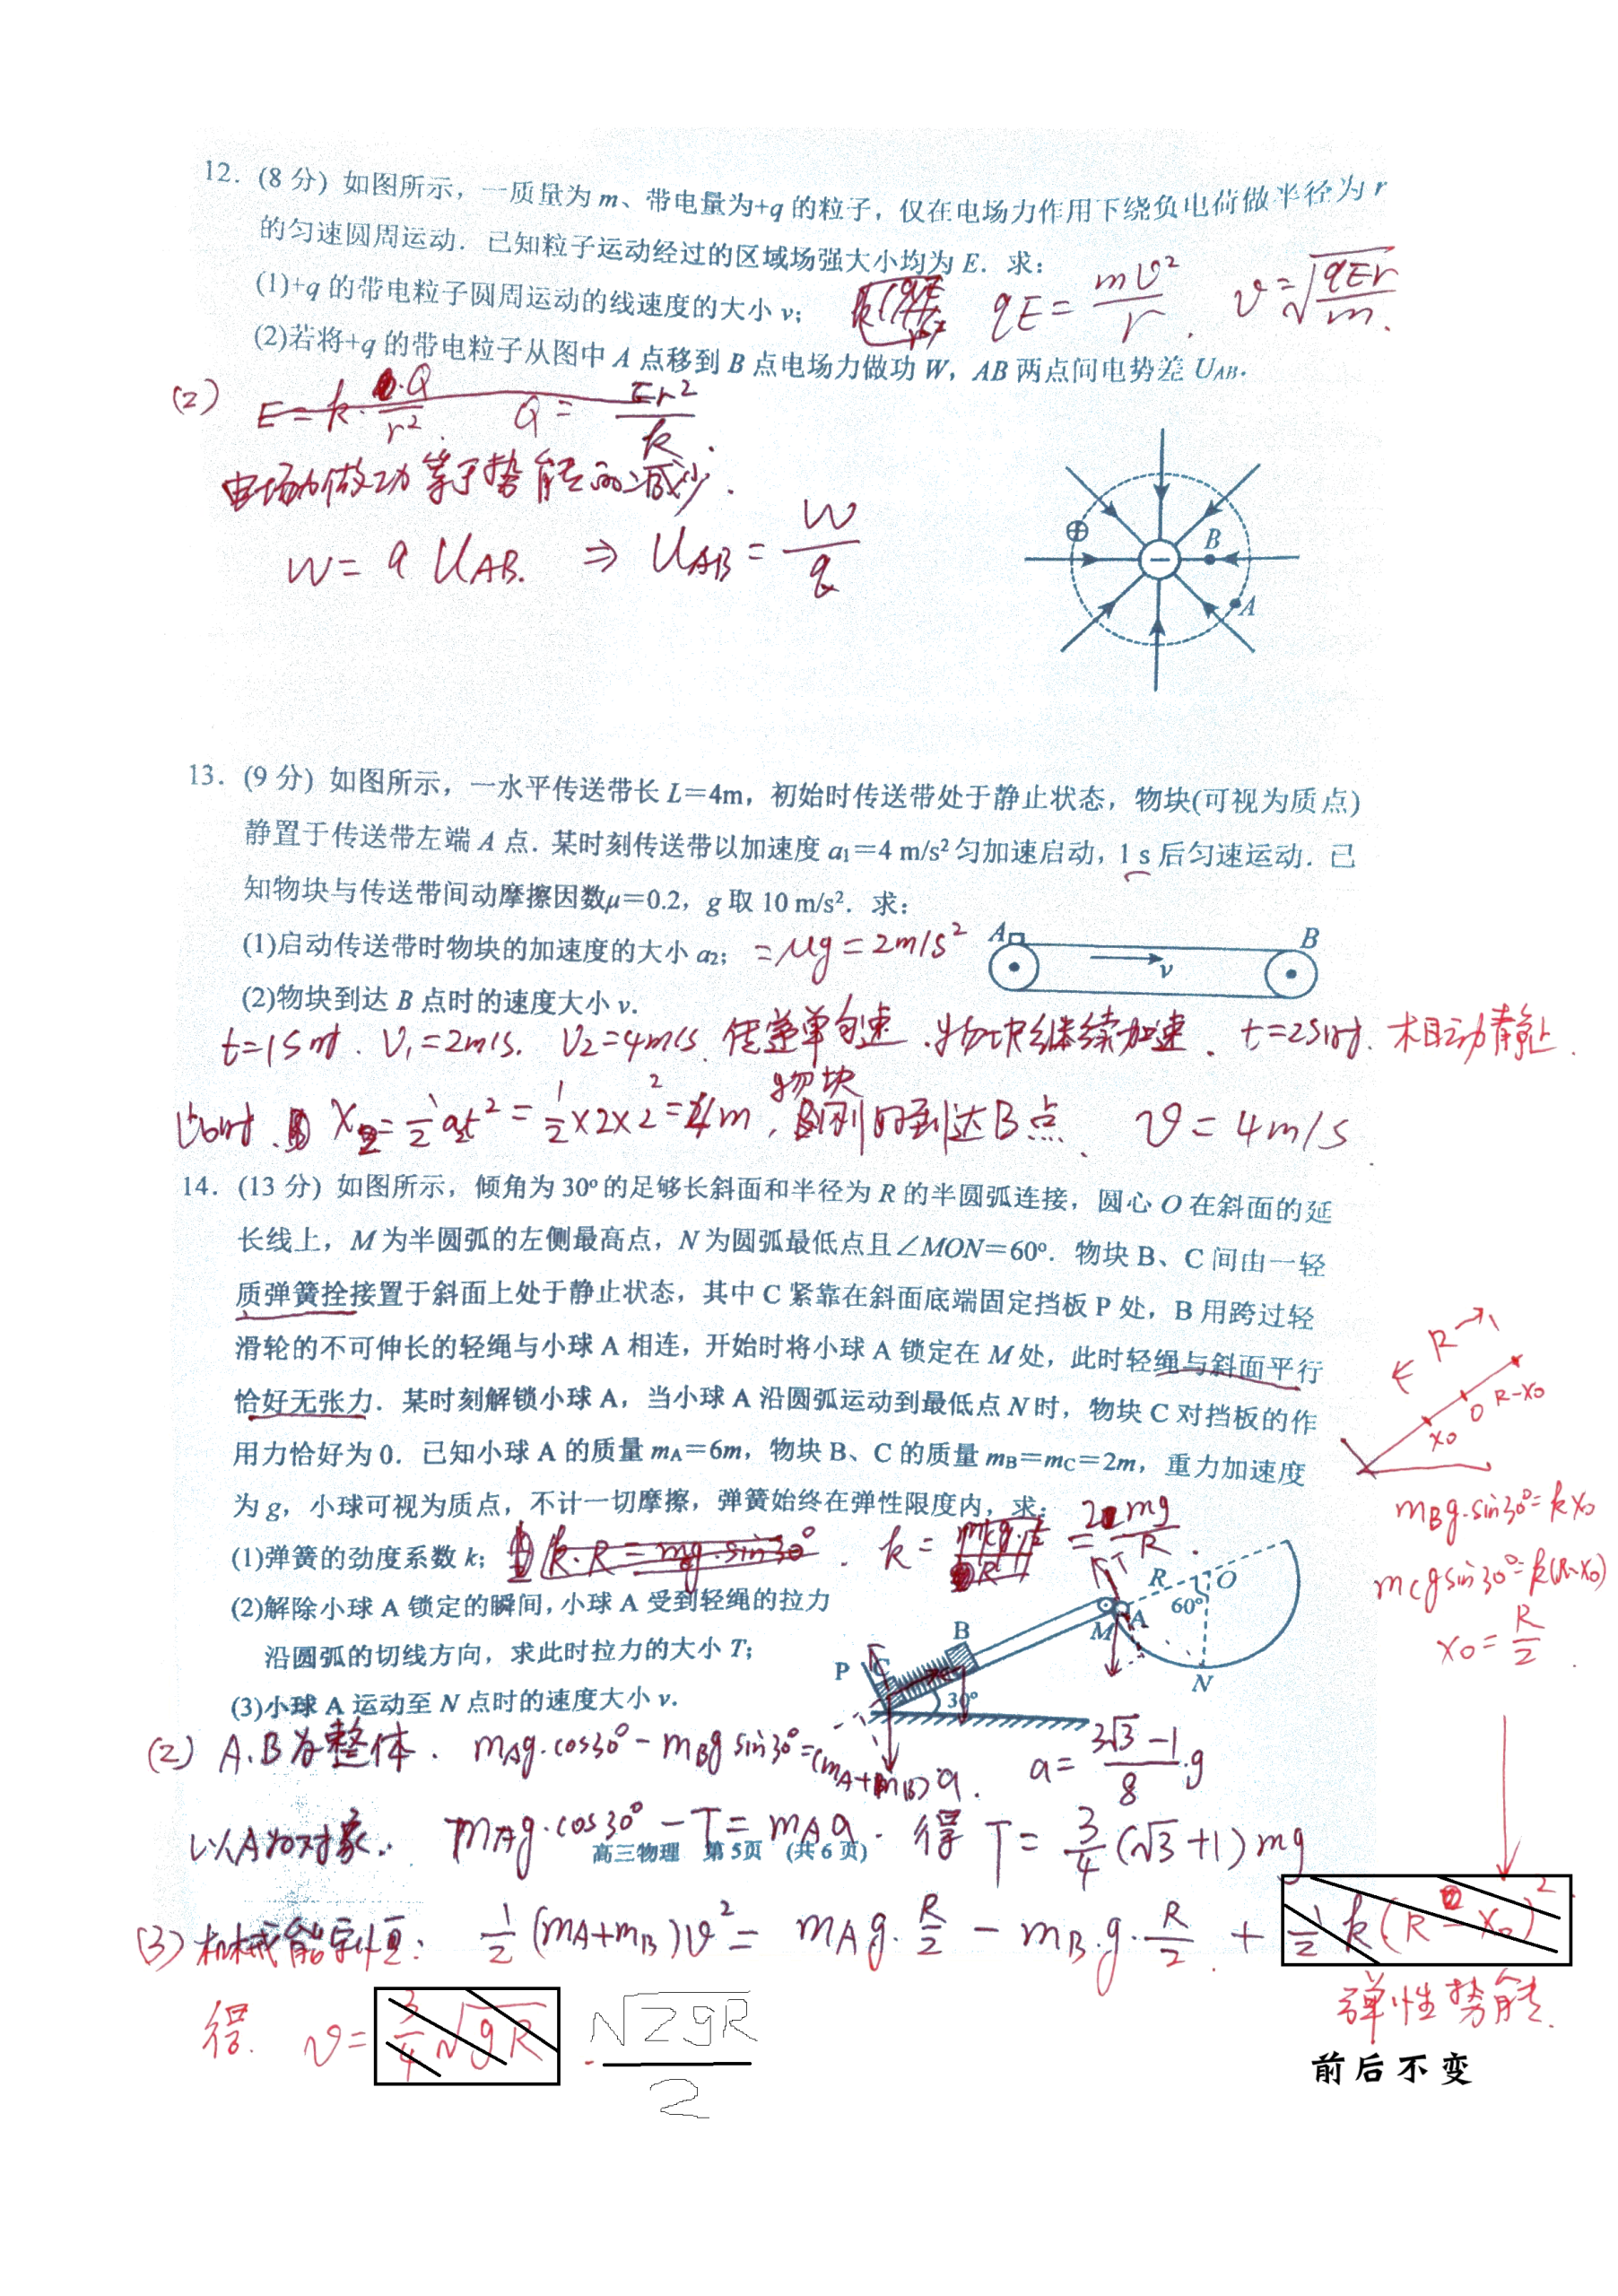 12. (8 分) 如图所示，一质量为 m、带电量为+q 的粒子，仅在电场力作用下绕负电荷做半径为 r
的匀速圆周运动．已知粒子运动经过的区域场强大小均为 E．求：
(1)+q 的带电粒子圆周运动的线速度的大小 v；
qE = mv²/r . v = √(qEr/m) .
(2)若将+q 的带电粒子从图中 A 点移到 B 点电场力做功 W，AB 两点间电势差 U_AB．
(2) E = k·Q/r² . Q = Er²/k .
电场力做功等于势能的减少 .
W = q U_AB. ⇒ U_AB = W/q
B
A
13. (9 分) 如图所示，一水平传送带长 L＝4m，初始时传送带处于静止状态，物块(可视为质点)
静置于传送带左端 A 点．某时刻传送带以加速度 a₁＝4 m/s² 匀加速启动，1 s 后匀速运动．已
知物块与传送带间动摩擦因数μ＝0.2，g 取 10 m/s²．求：
(1)启动传送带时物块的加速度的大小 a₂； = μg = 2m/s²
A B
v
(2)物块到达 B 点时的速度大小 v．
t=1s时. V₁=2m/s. V₂=4m/s. 传送带匀速 . 物块继续加速 . t=2s时. 相对静止 .
物块
此时 . X₂ = ½at² = ½×2×2² = 4m , 刚好到达B点 . v = 4m/s .
14. (13 分) 如图所示，倾角为 30° 的足够长斜面和半径为 R 的半圆弧连接，圆心 O 在斜面的延
长线上，M 为半圆弧的左侧最高点，N 为圆弧最低点且∠MON＝60°．物块 B、C 间由一轻
质弹簧拴接置于斜面上处于静止状态，其中 C 紧靠在斜面底端固定挡板 P 处，B 用跨过轻
滑轮的不可伸长的轻绳与小球 A 相连，开始时将小球 A 锁定在 M 处，此时轻绳与斜面平行
恰好无张力．某时刻解锁小球 A，当小球 A 沿圆弧运动到最低点 N 时，物块 C 对挡板的作
用力恰好为 0．已知小球 A 的质量 m_A＝6m，物块 B、C 的质量 m_B＝m_C＝2m，重力加速度
为 g，小球可视为质点，不计一切摩擦，弹簧始终在弹性限度内，求：
R
O R-x₀
x₀
m_B g·sin30°= kx₀
m_C g sin30°= k(R-x₀)
x₀ = R/2 .
(1)弹簧的劲度系数 k； k·R = mg·sin30° . k = = 2mg/R .
(2)解除小球 A 锁定的瞬间，小球 A 受到轻绳的拉力
沿圆弧的切线方向，求此时拉力的大小 T；
(3)小球 A 运动至 N 点时的速度大小 v．
R O
60°
M A
B
P C
N
30°
(2) A.B为整体 . m_A g·cos30° − m_B g sin30° = (m_A+m_B) a . a = (3√3−1)/8 ·g
以A为对象 . m_A g·cos30° − T = m_A a . 得 T = 3/4 (√3+1) mg
高三物理 第 5页 (共 6 页)
(3) 机械能守恒： ½ (m_A+m_B) v² = m_A g·R/2 − m_B·g·R/2 + ½ k(R − x₀)²
弹性势能 .
得 . v = 3/4 √gR √2gR/2
前后不变